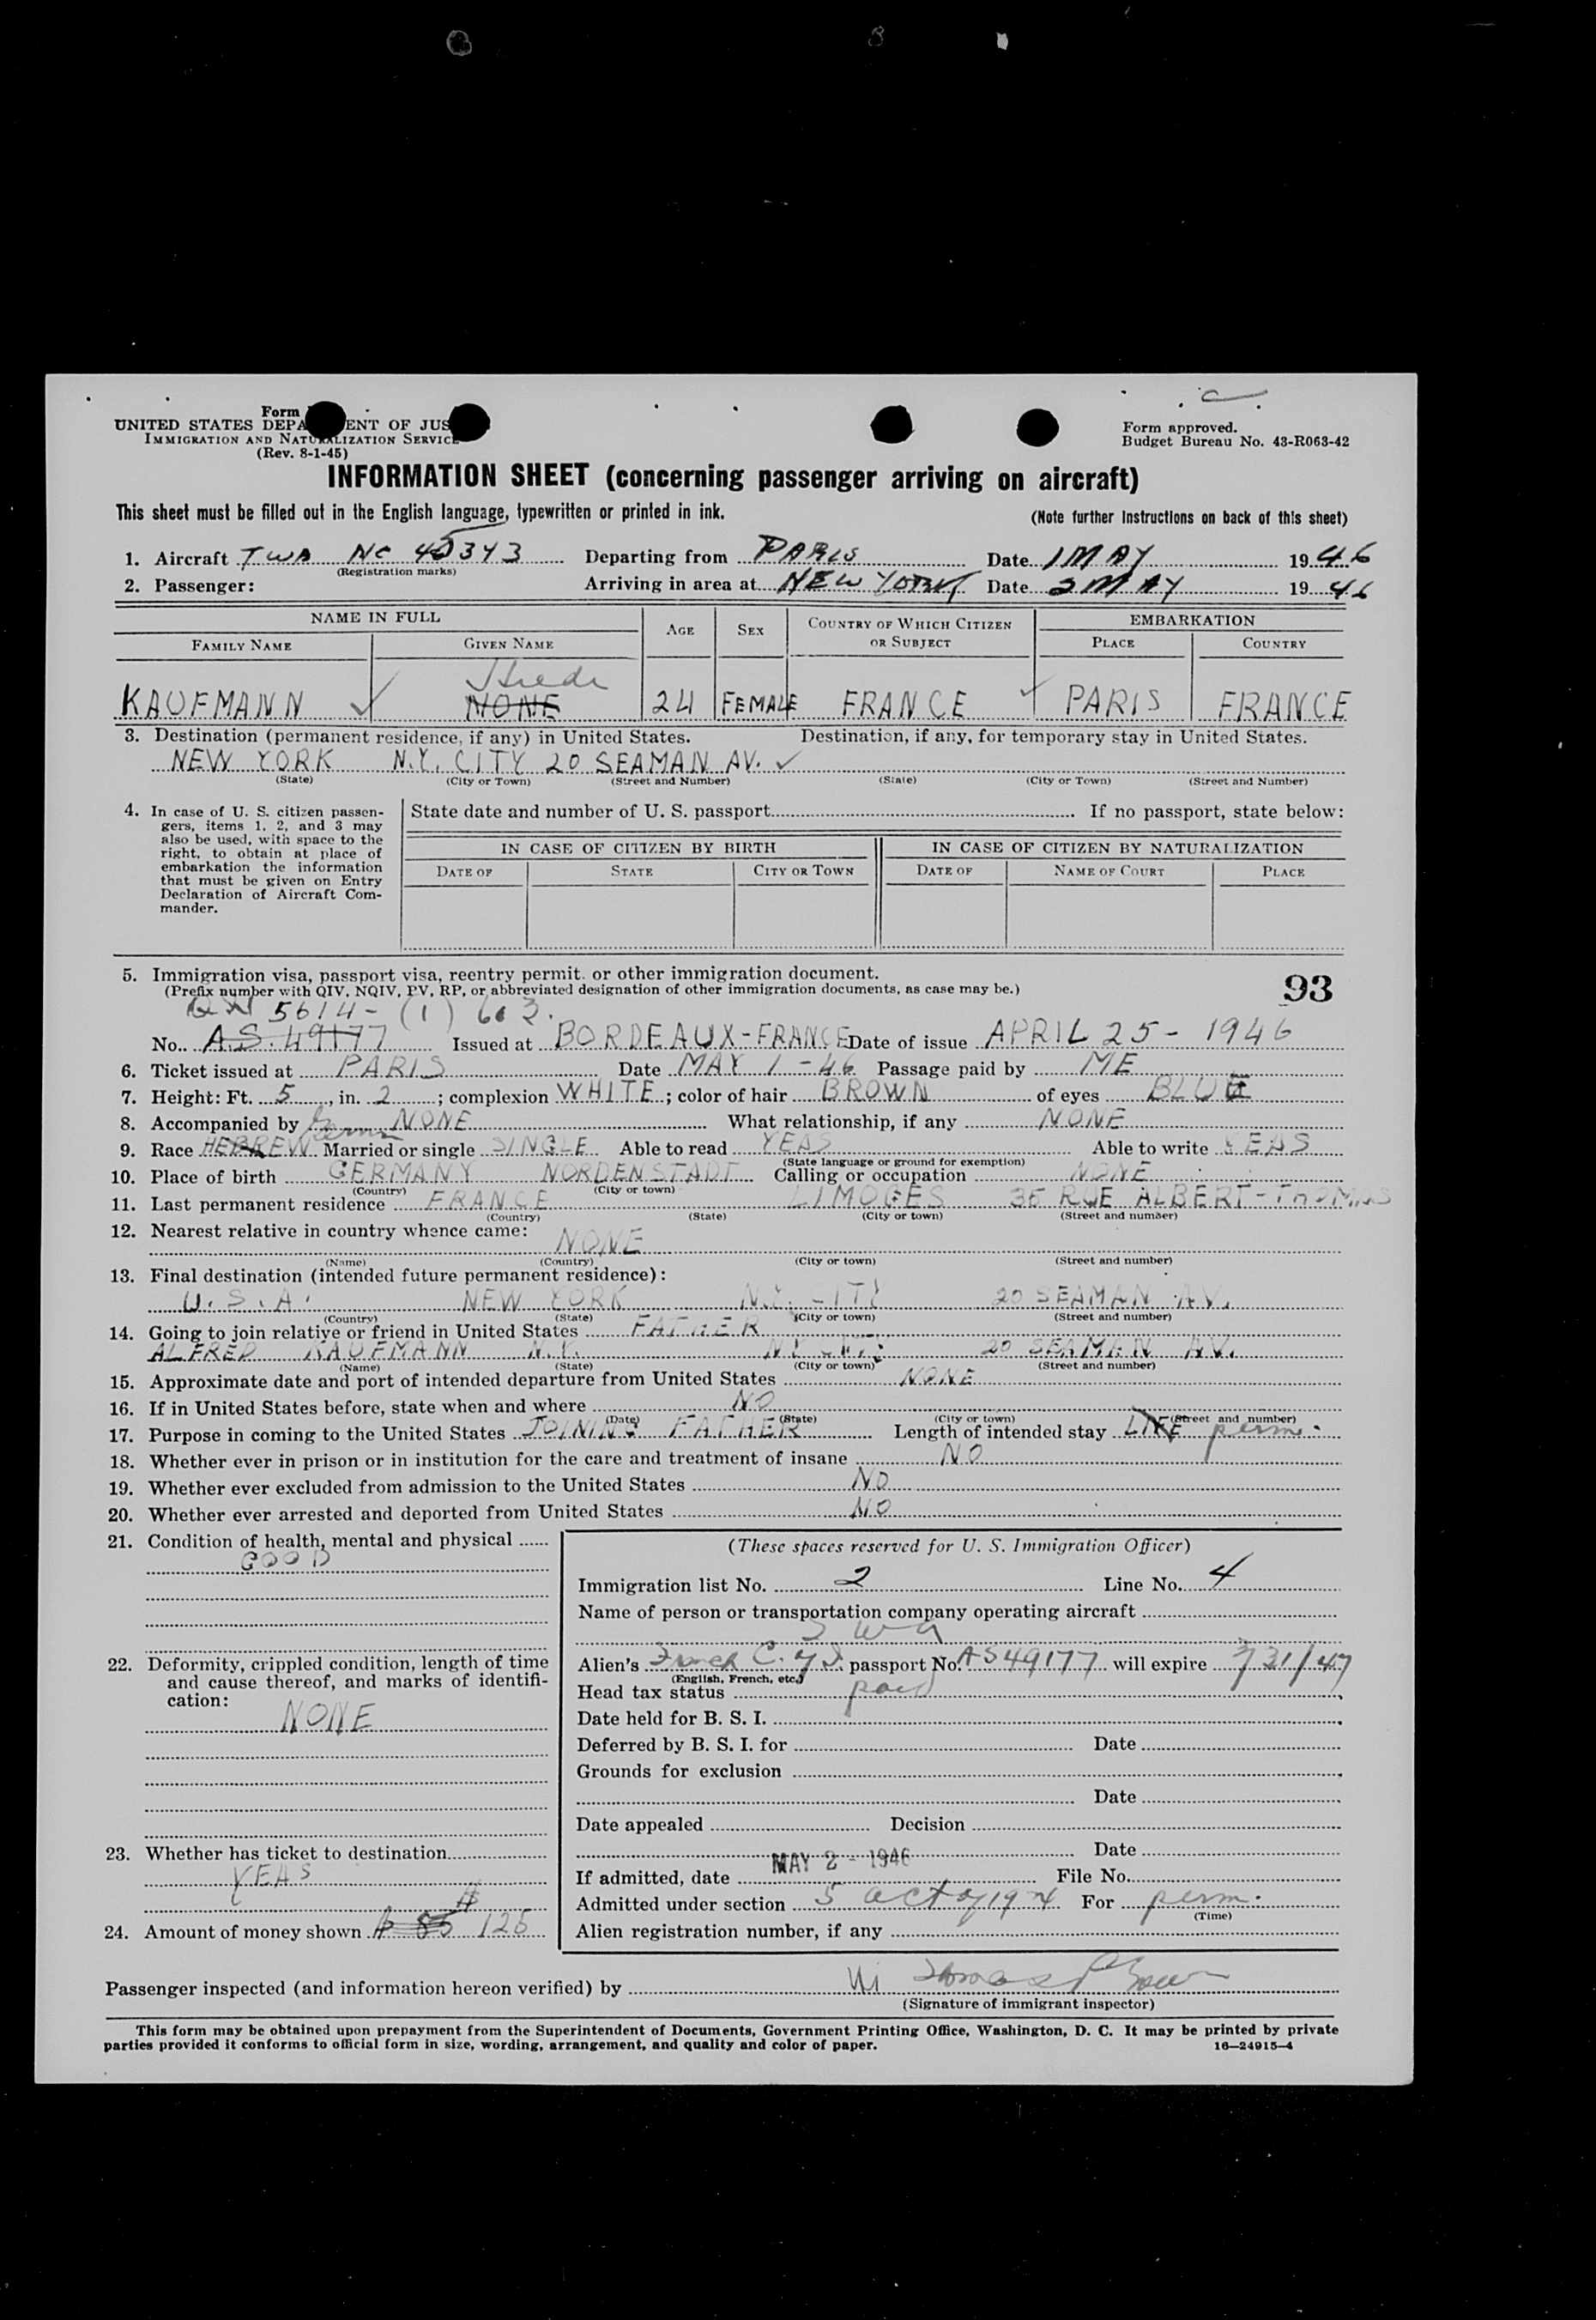 Form
UNITED STATES DEPA ENT OF JUS
IMMIGRATION AND NATURALIZATION SERVICE
(Rev. 8-1-45)
Form approved.
Budget Bureau No. 43-R063-42
INFORMATION SHEET (concerning passenger arriving on aircraft)
This sheet must be filled out in the English language, typewritten or printed in ink.
(Note further instructions on back of this sheet)
1. Aircraft TWA NC 45343 Departing from PARIS Date 1 MAY 1946
(Registration marks)
2. Passenger: Arriving in area at NEW YORK Date 2 MAY 1946
NAME IN FULL AGE SEX COUNTRY OF WHICH CITIZEN OR SUBJECT EMBARKATION
FAMILY NAME GIVEN NAME PLACE COUNTRY
KAUFMANN NONE 24 FEMALE FRANCE PARIS FRANCE
3. Destination (permanent residence, if any) in United States. Destination, if any, for temporary stay in United States.
NEW YORK N.Y. CITY 20 SEAMAN AV.
(State) (City or Town) (Street and Number) (State) (City or Town) (Street and Number)
4. In case of U. S. citizen passengers, items 1, 2, and 3 may also be used, with space to the right, to obtain at place of embarkation the information that must be given on Entry Declaration of Aircraft Commander.
State date and number of U. S. passport If no passport, state below:
IN CASE OF CITIZEN BY BIRTH IN CASE OF CITIZEN BY NATURALIZATION
DATE OF STATE CITY OR TOWN DATE OF NAME OF COURT PLACE
5. Immigration visa, passport visa, reentry permit. or other immigration document.
93
(Prefix number with QIV, NQIV, PV, RP, or abbreviated designation of other immigration documents, as case may be.)
5614-(1) 603.
No. AS.49177 Issued at BORDEAUX-FRANCE Date of issue APRIL 25-1946
6. Ticket issued at PARIS Date MAY 1-46 Passage paid by ME
7. Height: Ft. 5, in. 2; complexion WHITE; color of hair BROWN of eyes BLUE
8. Accompanied by NONE What relationship, if any NONE
9. Race HEBREW Married or single SINGLE Able to read YEAS Able to write YEAS
(State language or ground for exemption)
10. Place of birth GERMANY NORDENSTADT Calling or occupation NONE
(Country) (City or town)
11. Last permanent residence FRANCE LIMOGES 36 RUE ALBERT-THOMAS
(Country) (State) (City or town) (Street and number)
12. Nearest relative in country whence came: NONE
(Name) (Country) (City or town) (Street and number)
13. Final destination (intended future permanent residence):
U.S.A. NEW YORK N.Y. CITY 20 SEAMAN AV.
(Country) (State) (City or town) (Street and number)
14. Going to join relative or friend in United States FATHER
ALFRED KAUFMANN N.Y. NY CITY 20 SEAMAN AV.
(Name) (State) (City or town) (Street and number)
15. Approximate date and port of intended departure from United States NONE
16. If in United States before, state when and where NO
(Date) (State) (City or town) (Street and number)
17. Purpose in coming to the United States JOINING FATHER Length of intended stay LIFE perm.
18. Whether ever in prison or in institution for the care and treatment of insane NO
19. Whether ever excluded from admission to the United States NO
20. Whether ever arrested and deported from United States NO
21. Condition of health, mental and physical
GOOD
22. Deformity, crippled condition, length of time and cause thereof, and marks of identification:
NONE
23. Whether has ticket to destination
YEAS
24. Amount of money shown $ 85 $ 125
(These spaces reserved for U. S. Immigration Officer)
Immigration list No. 2 Line No. 4
Name of person or transportation company operating aircraft
TWA
Alien's French C. of I. passport No. AS49177 will expire 7/31/47
(English, French, etc.)
Head tax status paid
Date held for B. S. I.
Deferred by B. S. I. for Date
Grounds for exclusion
Date
Date appealed Decision
Date
If admitted, date MAY 2 - 1946 File No.
Admitted under section 5 act of 1924 For perm.
(Time)
Alien registration number, if any
Passenger inspected (and information hereon verified) by
(Signature of immigrant inspector)
This form may be obtained upon prepayment from the Superintendent of Documents, Government Printing Office, Washington, D. C. It may be printed by private
parties provided it conforms to official form in size, wording, arrangement, and quality and color of paper.
16—24915-4